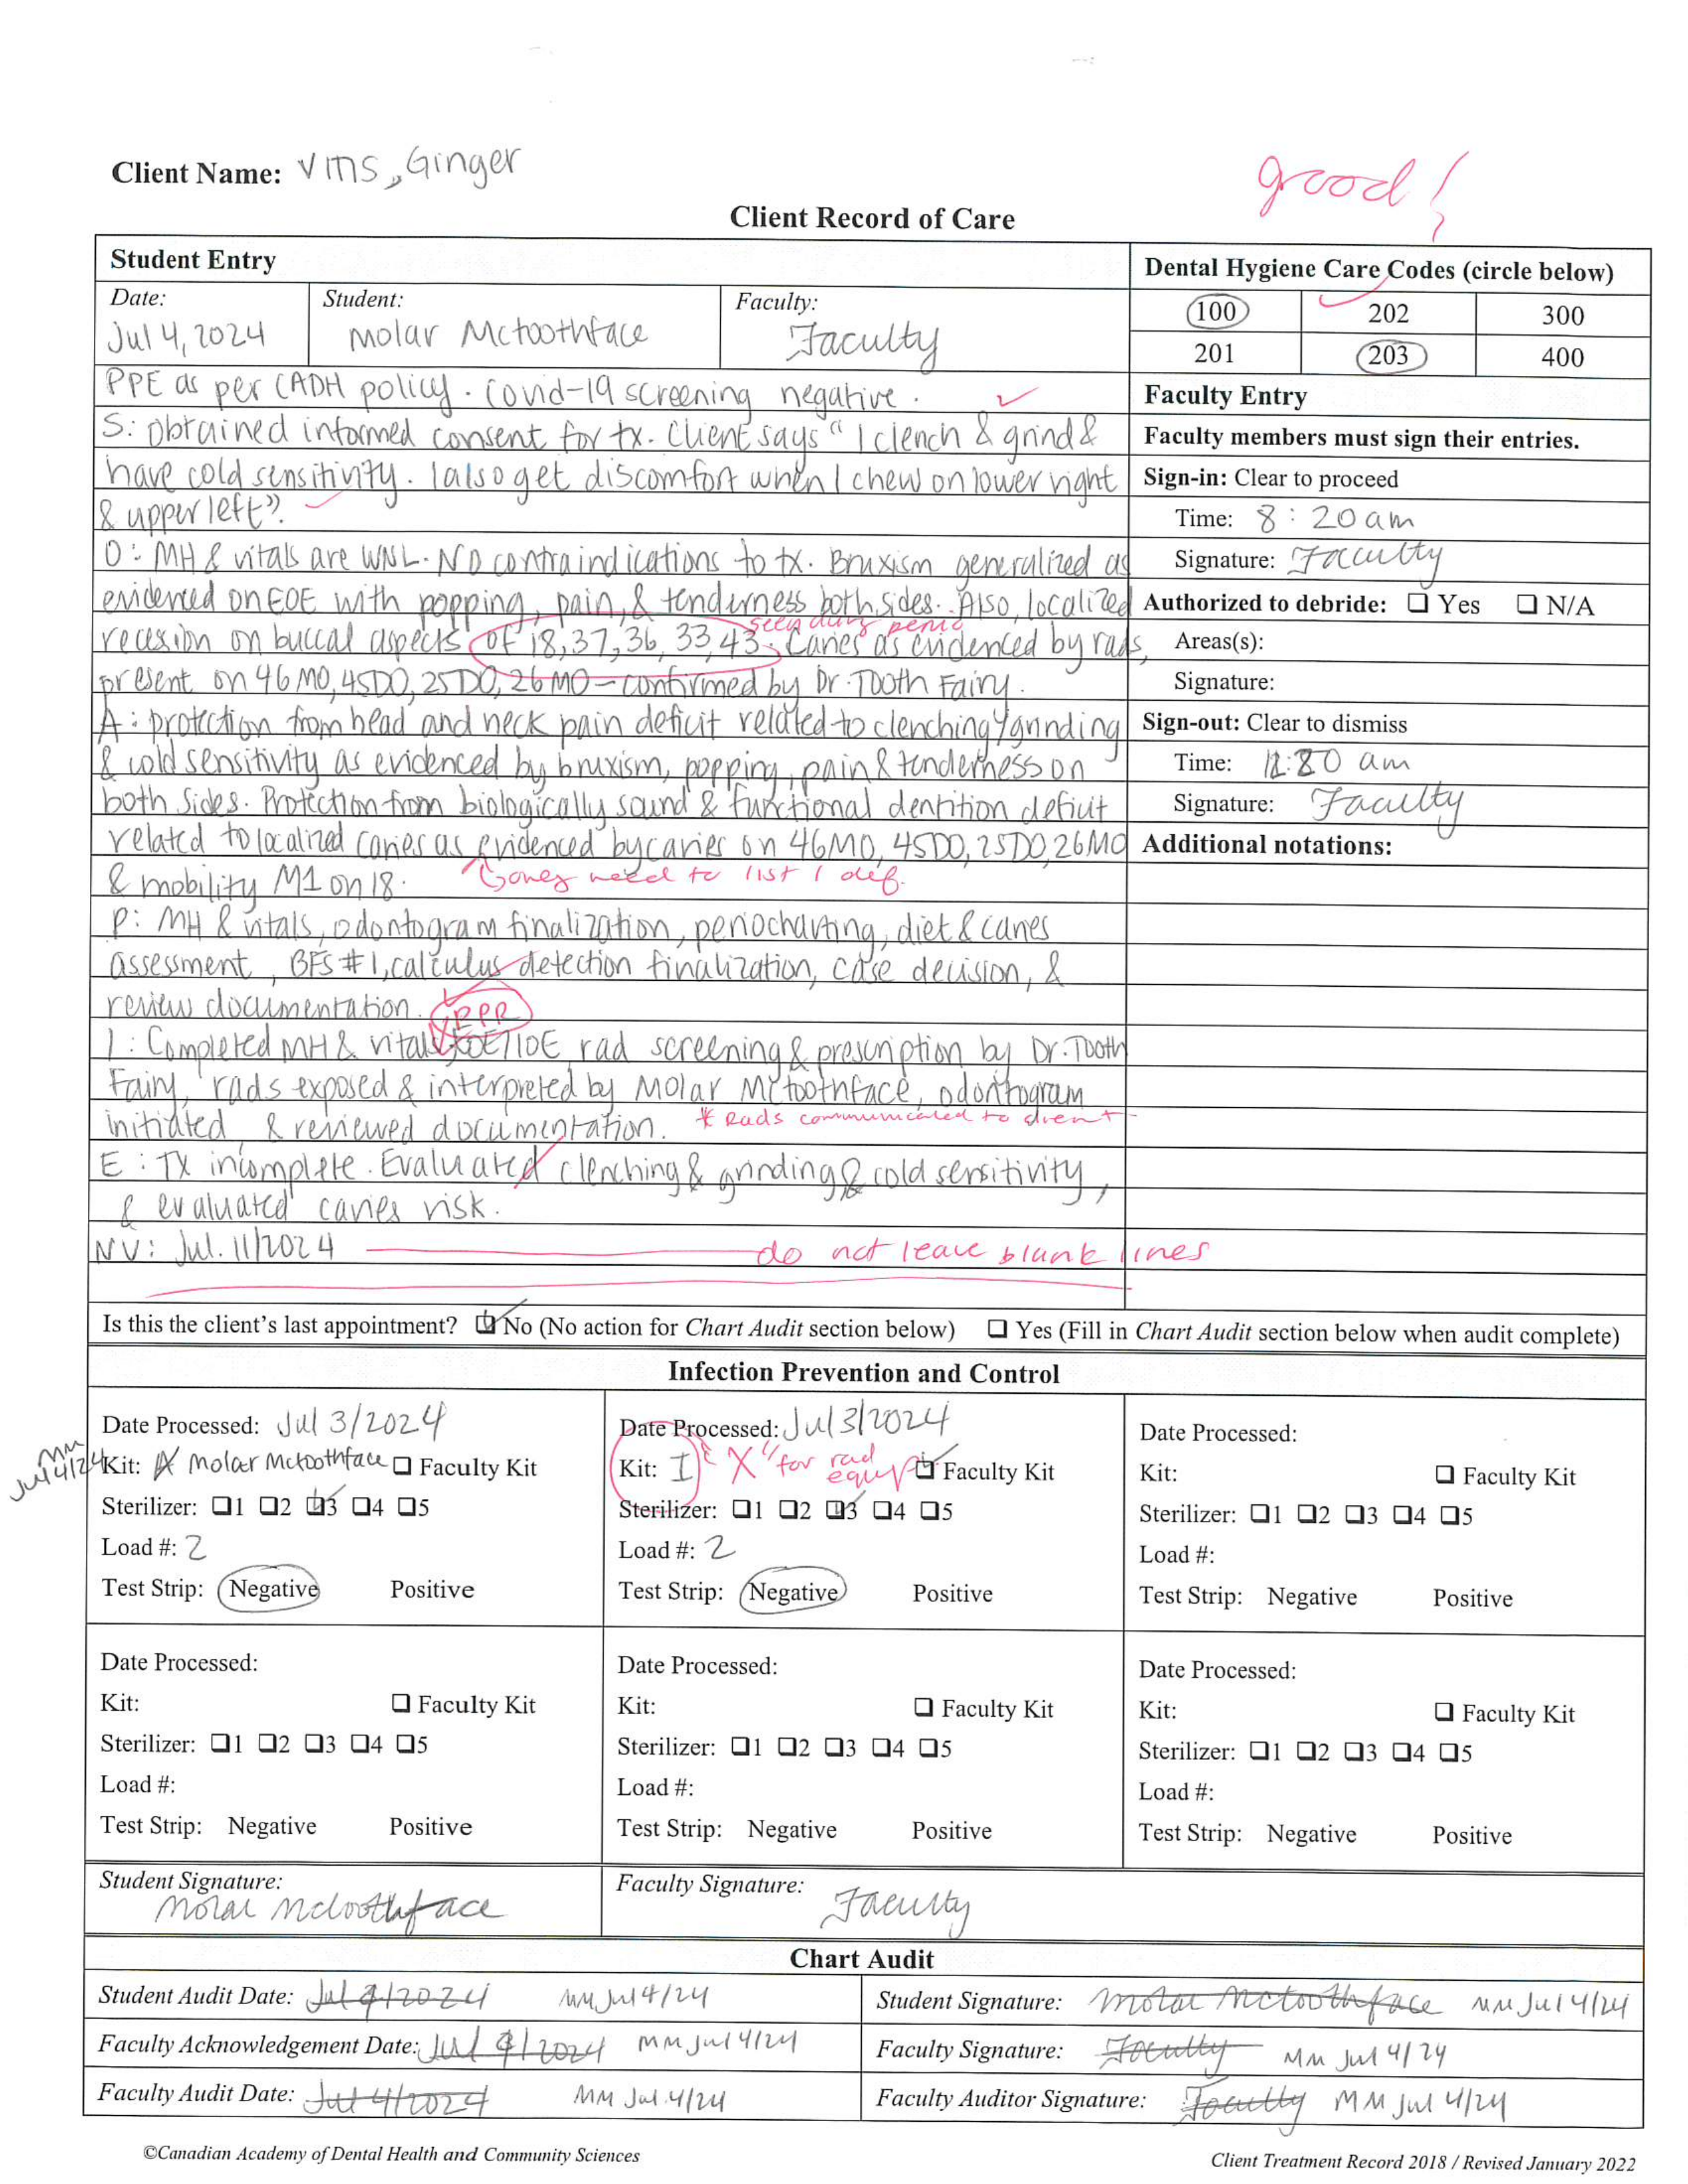 Client Name: Vms, Ginger
good!
Client Record of Care
Student Entry
Dental Hygiene Care Codes (circle below)
Date: Student: Faculty:
Jul 4, 2024 Molar Mctoothface Faculty
100 202 300
201 203 400
PPE as per CADH policy. Covid-19 screening negative.
S: Obtained informed consent for tx. Client says "I clench & grind &
have cold sensitivity. I also get discomfort when I chew on lower right
& upper left".
O: MH & vitals are WNL. No contraindications to tx. Bruxism generalized as
evidenced on EOE with popping, pain, & tenderness both sides. Also, localized
seen during perio
recession on buccal aspects of 18, 37, 36, 33, 43. Caries as evidenced by rads,
present on 46 MO, 45DO, 25DO, 26MO - confirmed by Dr. Tooth Fairy.
A: protection from head and neck pain deficit related to clenching/grinding
& cold sensitivity as evidenced by bruxism, popping, pain & tenderness on
both sides. Protection from biologically sound & functional dentition deficit
related to localized caries as evidenced by caries on 46MO, 45DO, 25DO, 26MO
& mobility M1 on 18.
only need to list 1 def.
P: MH & vitals, odontogram finalization, periocharting, diet & caries
assessment, BFS #1, calculus detection finalization, case decision, &
review documentation.
PPR
I: Completed MH & vitals, EOE/IOE, rad screening & prescription by Dr. Tooth
Fairy, rads exposed & interpreted by Molar Mctoothface, odontogram
initiated, & reviewed documentation.
* Rads communicated to client
E: Tx incomplete. Evaluated clenching & grinding & cold sensitivity,
& evaluated caries risk.
NV: Jul. 11/2024
do not leave blank lines
Faculty Entry
Faculty members must sign their entries.
Sign-in: Clear to proceed
Time: 8:20 am
Signature: Faculty
Authorized to debride: Yes N/A
Areas(s):
Signature:
Sign-out: Clear to dismiss
Time: am
Signature: Faculty
Additional notations:
Is this the client's last appointment? No (No action for Chart Audit section below) Yes (Fill in Chart Audit section below when audit complete)
Infection Prevention and Control
Date Processed: Jul 3/2024
MM Jul 4/24
Kit: A Molar Mctoothface Faculty Kit
Sterilizer: 1 2 3 4 5
Load #: 2
Test Strip: Negative Positive
Date Processed: Jul 3/2024
Kit: I "X" for rad equip Faculty Kit
Sterilizer: 1 2 3 4 5
Load #: 2
Test Strip: Negative Positive
Date Processed:
Kit: Faculty Kit
Sterilizer: 1 2 3 4 5
Load #:
Test Strip: Negative Positive
Date Processed:
Kit: Faculty Kit
Sterilizer: 1 2 3 4 5
Load #:
Test Strip: Negative Positive
Date Processed:
Kit: Faculty Kit
Sterilizer: 1 2 3 4 5
Load #:
Test Strip: Negative Positive
Date Processed:
Kit: Faculty Kit
Sterilizer: 1 2 3 4 5
Load #:
Test Strip: Negative Positive
Student Signature: Molar Mctoothface
Faculty Signature: Faculty
Chart Audit
Student Audit Date: Jul 4/2024 MM Jul 4/24
Student Signature: Molar Mctoothface MM Jul 4/24
Faculty Acknowledgement Date: Jul 4/2024 MM Jul 4/24
Faculty Signature: Faculty MM Jul 4/24
Faculty Audit Date: Jul 4/2024 MM Jul 4/24
Faculty Auditor Signature: Faculty MM Jul 4/24
©Canadian Academy of Dental Health and Community Sciences
Client Treatment Record 2018 / Revised January 2022